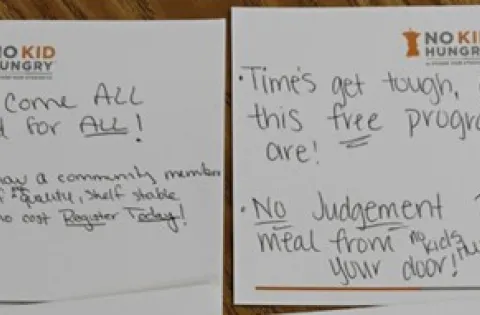 NO KID
HUNGRY
COME ALL
for ALL!
a community member
quality, shelf stable
no cost Register Today!
NO KID
HUNGRY
• Time's get tough,
this free progra
are!
• No Judgement
meal from no kids
your door!